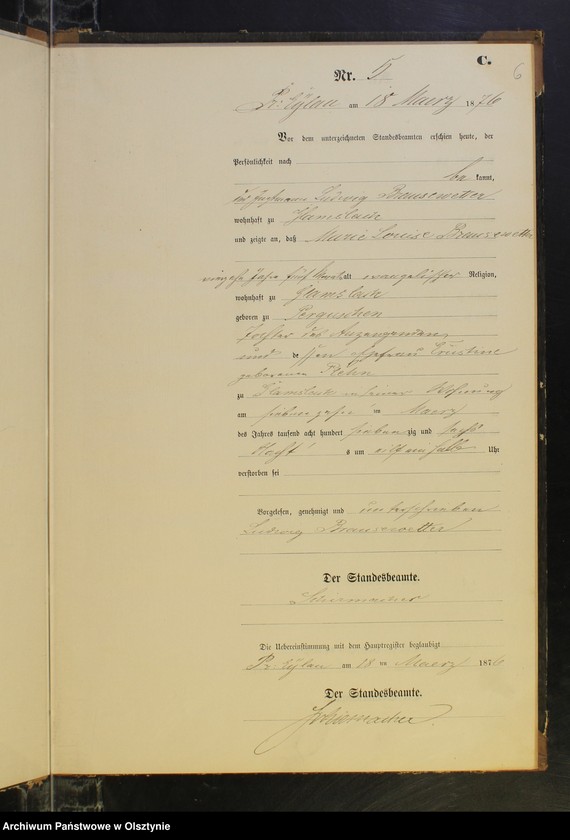 C.
6
Nr. 5
Pr. Eylau am 18 Maerz 1876
Vor dem unterzeichneten Standesbeamten erschien heute, der
Persönlichkeit nach
be kannt,
Ludwig Brausewetter
wohnhaft zu
und zeigte an, daß Marie Louise Brausewetter
vierzehn Jahre fünf alt evangelischer Religion,
wohnhaft zu
geboren zu Perguschen
Tochter des Anzeigenden,
und dessen Ehefrau
geborenen
zu in seiner Wohnung
am siebenzehn ten Maerz
des Jahres tausend acht hundert sieben zig und sechs
Nachts um eilf ein halb Uhr
verstorben sei
Vorgelesen, genehmigt und unterschrieben
Ludwig Brausewetter
Der Standesbeamte.
Schirmacher
Die Uebereinstimmung mit dem Hauptregister beglaubigt
Pr. Eylau am 18 ten Maerz 1876
Der Standesbeamte.
Schirmacher.
Archiwum Państwowe w Olsztynie